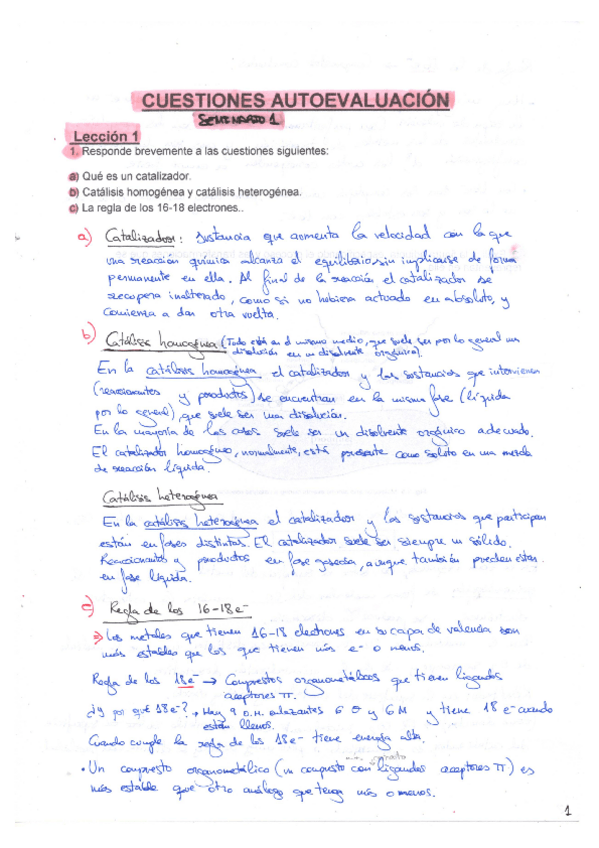 CUESTIONES AUTOEVALUACIÓN
SEMINARIO 1
Lección 1
1. Responde brevemente a las cuestiones siguientes:
a) Qué es un catalizador.
b) Catálisis homogénea y catálisis heterogénea.
c) La regla de los 16-18 electrones..
a) Catalizador: Sustancia que aumenta la velocidad con la que
una reacción química alcanza el equilibrio sin implicarse de forma
permanente en ella. Al final de la reacción el catalizador se
recupera inalterado, como si no hubiera actuado en absoluto, y
comienza a dar otra vuelta.
b) Catálisis homogénea (Todo está en el mismo medio, que suele ser por lo general un
disolución en un disolvente orgánico).
En la catálisis homogénea el catalizador y las sustancias que intervienen
(reaccionantes y productos) se encuentran en la misma fase (líquida
por lo general), que suele ser una disolución.
En la mayoría de los casos suele ser un disolvente orgánico adecuado.
El catalizador homogéneo, normalmente, está presente como soluto en una mezcla
de reacción líquida.
Catálisis heterogénea
En la catálisis heterogénea el catalizador y las sustancias que participan
están en fases distintas. El catalizador suele ser siempre un sólido.
Reaccionantes y productos en fase gaseosa, aunque también pueden estar
en fase líquida.
c) Regla de los 16-18e-
Los metales que tienen 16-18 electrones en su capa de valencia son
más estables que los que tienen más e- o menos.
Regla de los 18e- → Compuestos organometálicos que tienen ligandos
aceptores π.
¿Y por qué 18e-? → Hay 9 O.M. enlazantes 6 σ y y tiene 18 e- cuando
están llenos.
Cuando cumple la regla de los 18e- tiene energía alta.
• Un compuesto organometálico (un compuesto con ligandos aceptores π) es
más estable que otro análogo que tenga más o menos.
1